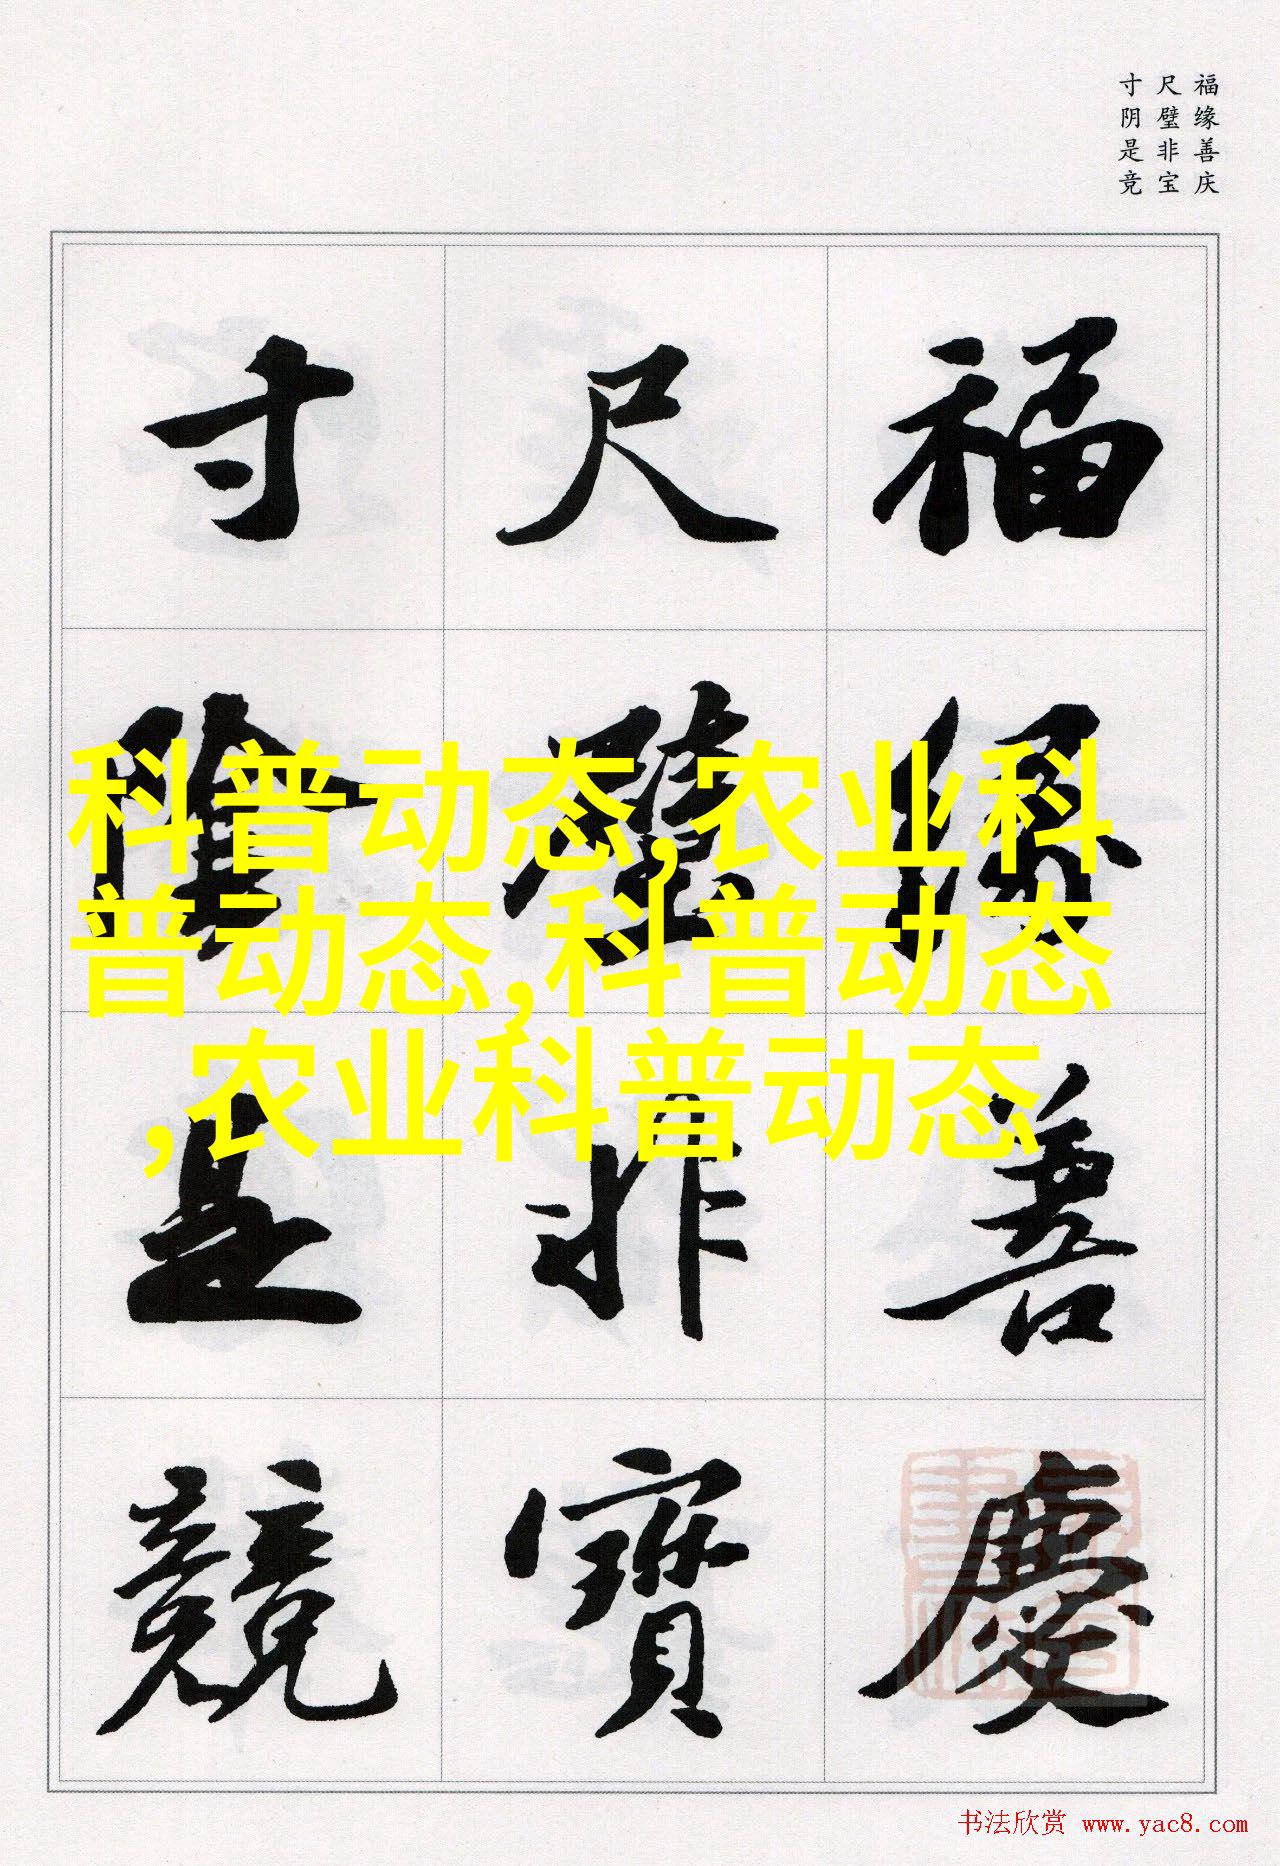 福缘善庆
尺璧非宝
寸阴是竞
福緣善慶
尺璧非寶
寸陰是競
科普动态,农业科
普动态,科普动态
,农业科普动态
书法欣赏 www.yac8.com